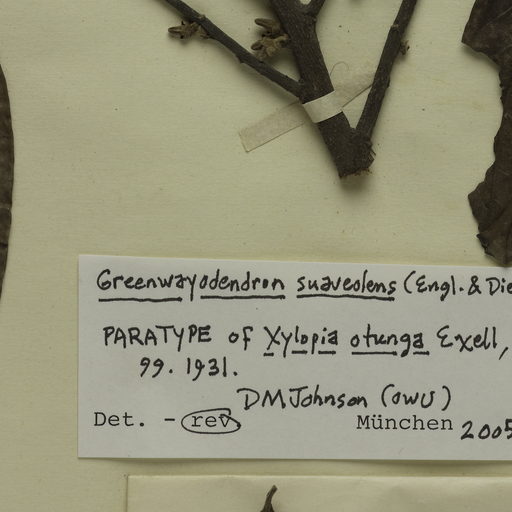 Greenwayodendron suaveolens (Engl. & Die
PARATYPE of Xylopia otunga Exell,
99. 1931.
DMJohnson (OWU)
Det. - rev. München 2005